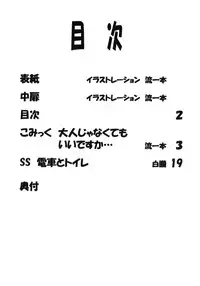 目次
表紙 イラストレーション 流一本
中扉 イラストレーション 流一本
目次 2
こみっく 大人じゃなくても
いいですか… 流一本 3
SS 電車とトイレ 19
奥付